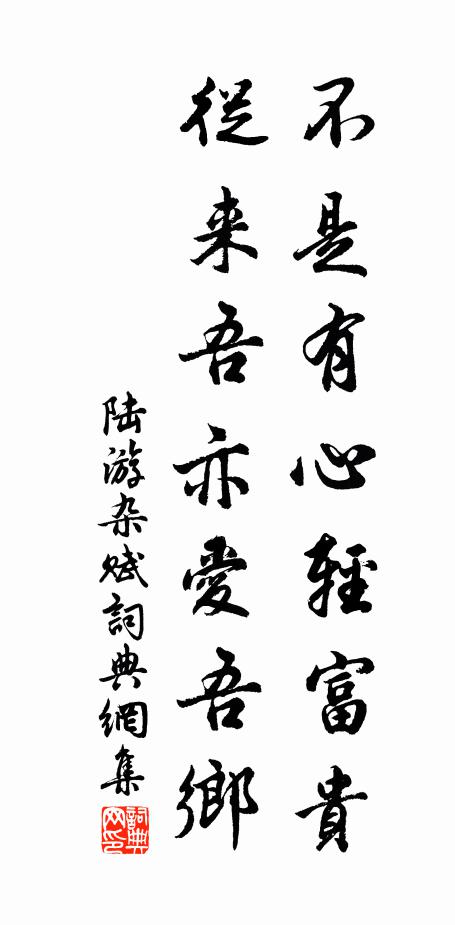 不是有心輕富貴
從来吾亦愛吾鄉
陆游杂赋詞典網集
詞典网印